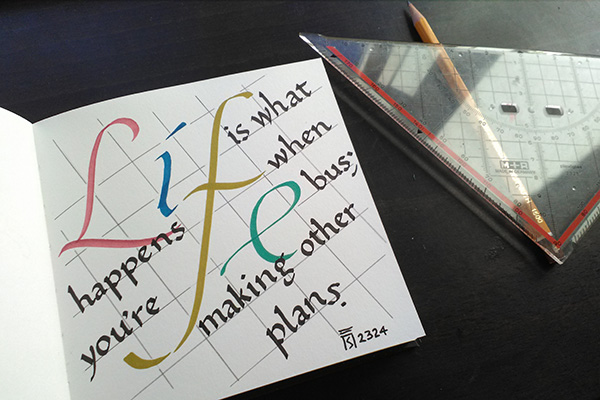 Life is what
happens when
you're busy
making other
plans.
2324
M+R